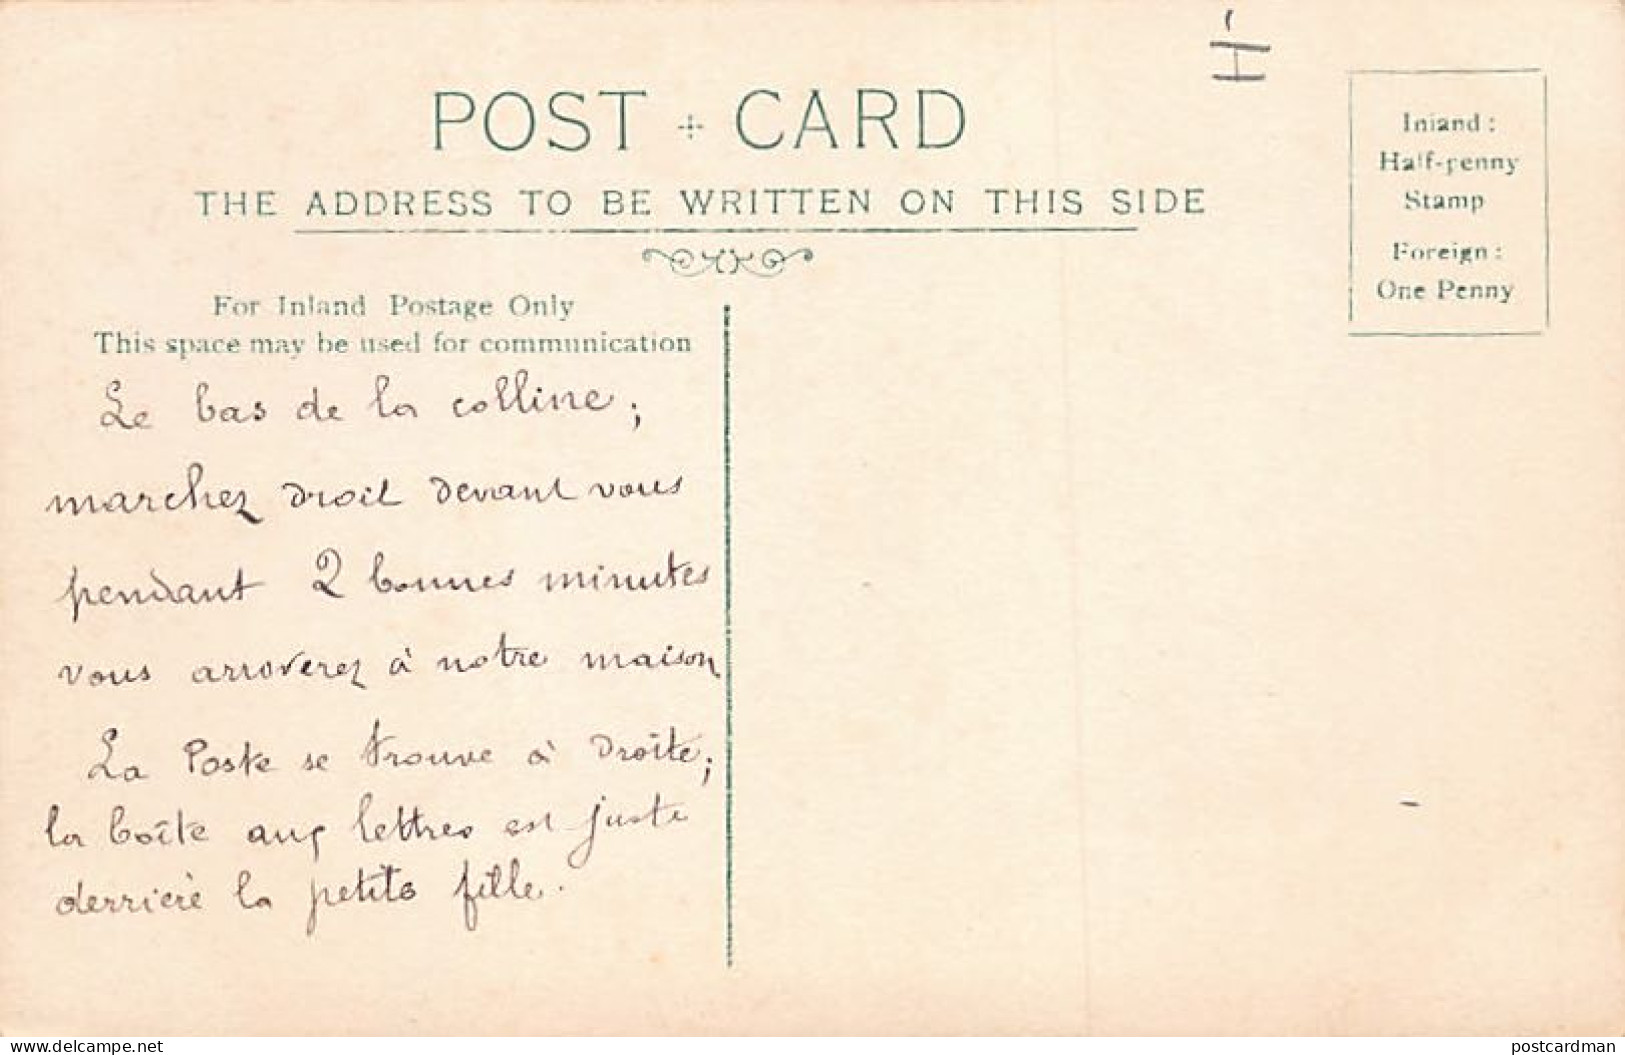 POST + CARD
THE ADDRESS TO BE WRITTEN ON THIS SIDE
Inland :
Half-penny
Stamp
Foreign :
One Penny
For Inland Postage Only
This space may be used for communication
Le bas de la colline ;
marchez droit devant vous
pendant 2 bonnes minutes
vous arriverez à notre maison
La Poste se trouve à droite ;
la boîte aux lettres est juste
derrière la petite fille.
delcampe.net
postcardman